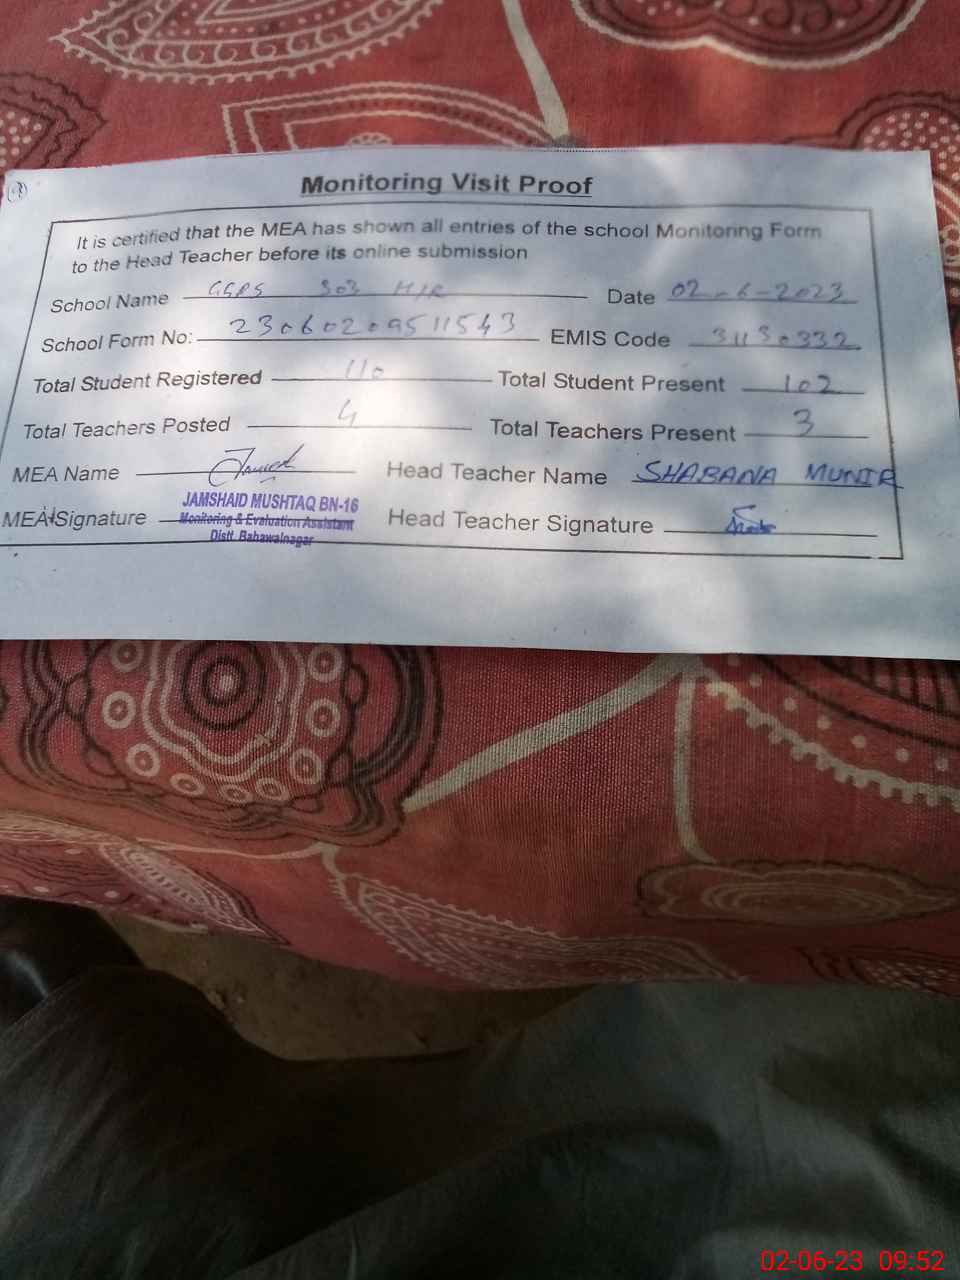 Monitoring Visit Proof
It is certified that the MEA has shown all entries of the school Monitoring Form
to the Head Teacher before its online submission
School Name GGPS 303 H/R Date 02-6-2023
School Form No: 2306020951 1543 EMIS Code 31130332
Total Student Registered 110 Total Student Present 102
Total Teachers Posted 4 Total Teachers Present 3
MEA Name Head Teacher Name SHABANA MUNIR
JAMSHAID MUSHTAQ BN-16
MEA Signature Monitoring & Evaluation Assistant Head Teacher Signature
Distt. Bahawalnagar
02-06-23 09:52